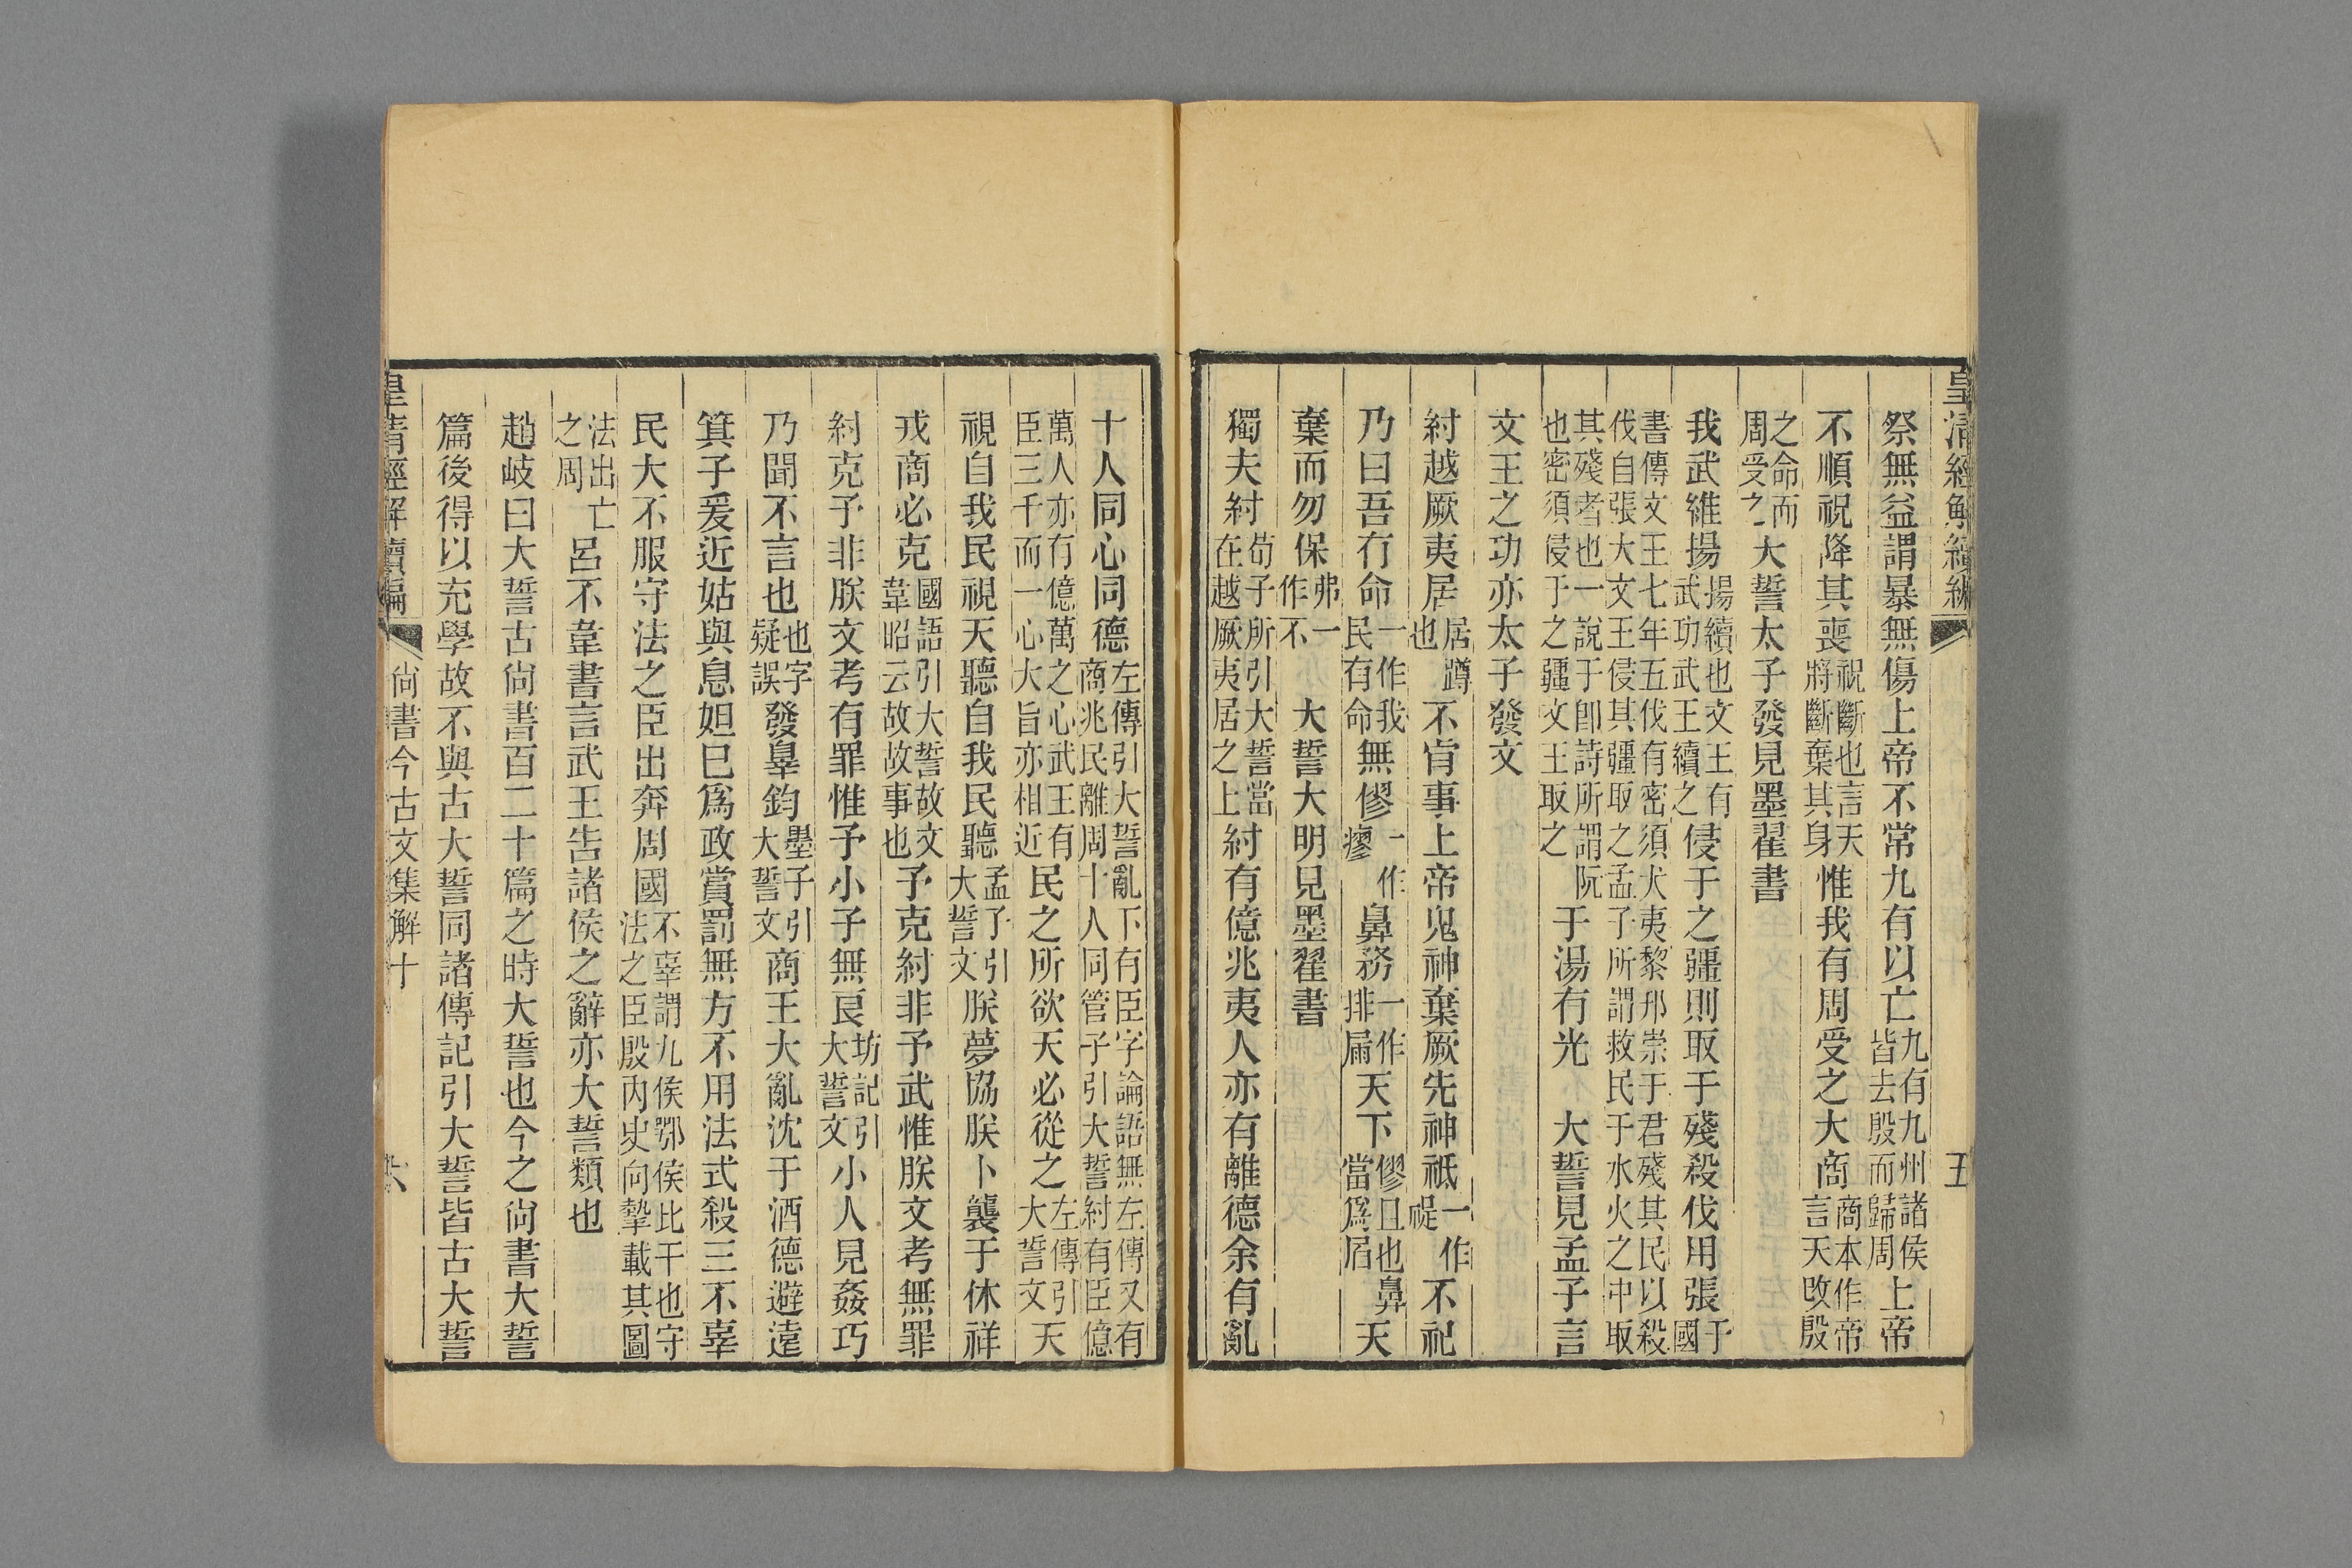 皇清經解續編 五
祭無益謂暴無傷上帝不常九有以亡九有九州諸侯皆去殷而歸周上帝
不順祝降其喪祝斷也言天將斷棄其身惟我有周受之大商商本作帝言天改殷
之命而周受之大誓太子發見墨翟書
我武維揚揚續也文王有武功武王續之侵于之疆則取于殘殺伐用張于國
書傳文王七年五伐有密須犬夷黎邘崇于君殘其民以殺伐自張大文王侵其疆取之孟子所謂救民于水火之中取
其殘者也一說于卽詩所謂阮也密須侵于之疆文王取之于湯有光 大誓見孟子言
文王之功亦太子發文
紂越厥夷居居蹲也不肯事上帝鬼神棄厥先神祇一作禔不祀
乃曰吾有命一作我民有命無僇一作瘳鼻務一作排屚天下僇且也鼻當爲天
棄而勿保弗一作不 大誓大明見墨翟書
獨夫紂荀子所引大誓當在越厥夷居之上紂有億兆夷人亦有離德余有亂
十人同心同德左傳引大誓亂下有臣字論語無左傳又有商兆民離周十人同管子引大誓紂有臣億
萬人亦有億萬之心武王有臣三千而一心大旨亦相近民之所欲天必從之左傳引大誓文天
視自我民視天聽自我民聽孟子引大誓文朕夢協朕卜襲于休祥
戎商必克國語引大誓故文韋昭云故故事也予克紂非予武惟朕文考無罪
紂克予非朕文考有罪惟予小子無良坊記引大誓文小人見姦巧
乃聞不言也也字疑誤發辠鈞墨子引大誓文商王大亂沈于酒德避遠
箕子爰近姑與息妲巳爲政賞罰無方不用法式殺三不辜
民大不服守法之臣出奔周國不辜謂九侯鄂侯比干也守法之臣殷內史向摯載其圖
法出亡之周呂不韋書言武王告諸侯之辭亦大誓類也
趙岐曰大誓古尙書百二十篇之時大誓也今之尙書大誓
篇後得以充學故不與古大誓同諸傳記引大誓皆古大誓
皇清經解續編 尙書今古文集解十 六